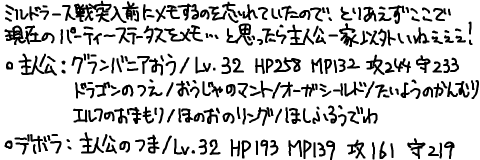 ミルドラース戦突入前にメモするのを忘れていたので、とりあえずここで
現在のパーティーステータスをメモ…と思ったら主人公一家以外いねぇぇぇ!
○主人公:グランバニアおう/Lv.32 HP258 MP132 攻244 守233
ドラゴンのつえ/おうじゃのマント/オーガシールド/たいようのかんむり
エルフのおまもり/ほのおのリング/ほしふるうでわ
○デボラ:主人公のつま/Lv.32 HP193 MP139 攻161 守219